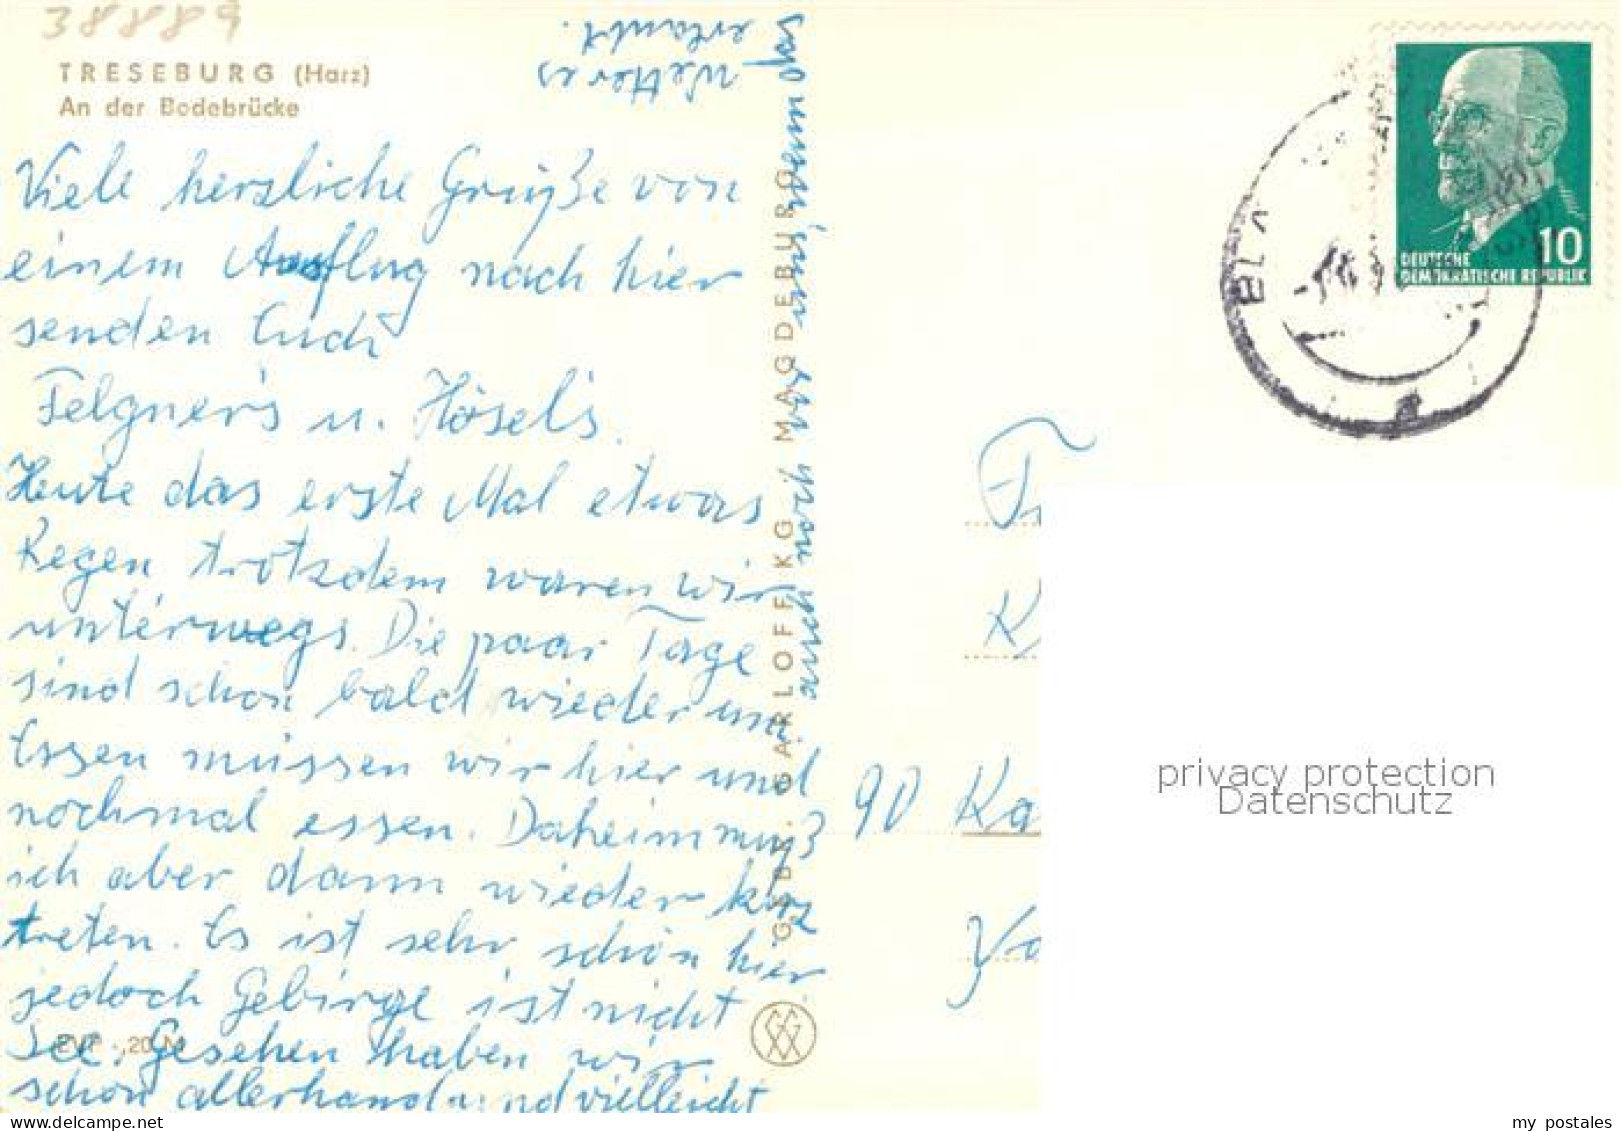 38889
TRESEBURG (Harz)
An der Bodebrücke
Viele herzliche Grüße von
einem Ausflug nach hier
senden Euch
Felgner's u. Hösel's.
Heute das erste Mal etwas
Regen, trotzdem waren wir
unterwegs. Die paar Tage
sind schon bald wieder um.
Essen müssen wir hier und
nochmal essen. Daheim muß
ich aber dann wieder kurz
treten. Es ist sehr schön hier
jedoch Gebirge ist nicht
See. Gesehen haben wir
schon allerhand und vielleicht
auch noch wenn das
Wetter es
erlaubt.
EVP -,20 M
GEBR. GARLOFF KG, MAGDEBURG
10
DEUTSCHE
DEMOKRATISCHE REPUBLIK
BLA
Fr
K
90 Ka
Vo
privacy protection
Datenschutz
delcampe.net
my_postales